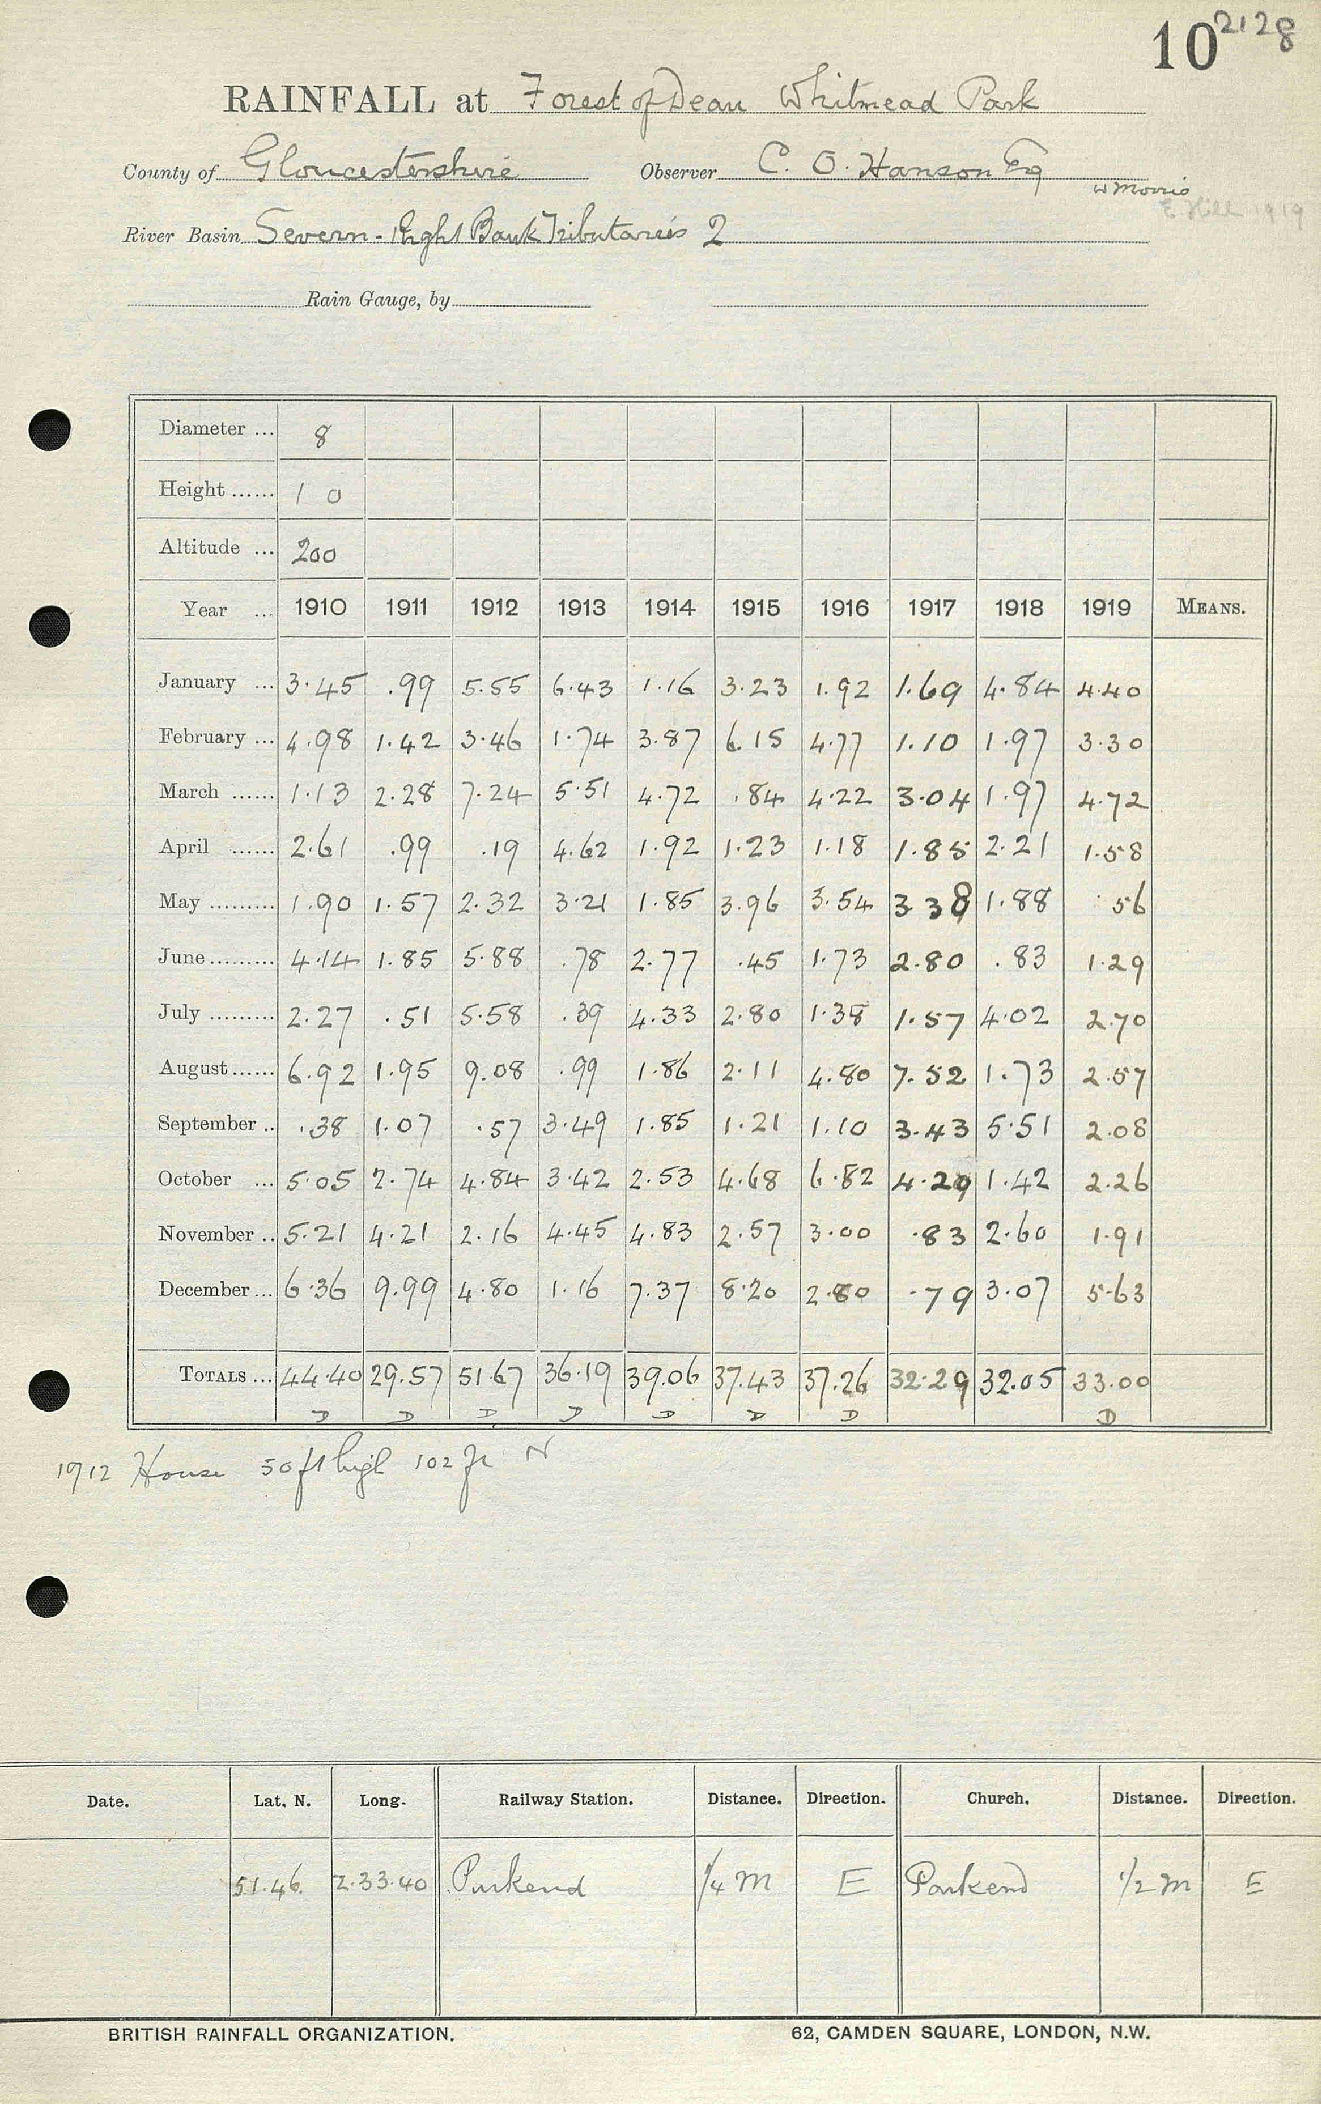 10 2128
RAINFALL at Forest of Dean Whitmead Park
County of Gloucestershire Observer C. O. Hanson Esq
W Morris
E Hill 1919
River Basin Severn - Right Bank Tributaries 2
Rain Gauge, by
Diameter ... 8
Height ...... 1 0
Altitude ... 200
Year ... 1910 1911 1912 1913 1914 1915 1916 1917 1918 1919 MEANS.
January ... 3.45 .99 5.55 6.43 1.16 3.23 1.92 1.69 4.84 4.40
February ... 4.98 1.42 3.46 1.74 3.87 6.15 4.77 1.10 1.97 3.30
March ...... 1.13 2.28 7.24 5.51 4.72 .84 4.22 3.04 1.97 4.72
April ...... 2.61 .99 .19 4.62 1.92 1.23 1.18 1.85 2.21 1.58
May ......... 1.90 1.57 2.32 3.21 1.85 3.96 3.54 3 38 1.88 .56
June ......... 4.14 1.85 5.88 .78 2.77 .45 1.73 2.80 .83 1.29
July ......... 2.27 .51 5.58 .39 4.33 2.80 1.38 1.57 4.02 2.70
August ...... 6.92 1.95 9.08 .99 1.86 2.11 4.80 7.52 1.73 2.57
September .. .38 1.07 .57 3.49 1.85 1.21 1.10 3.43 5.51 2.08
October ... 5.05 2.74 4.84 3.42 2.53 4.68 6.82 4.29 1.42 2.26
November .. 5.21 4.21 2.16 4.45 4.83 2.57 3.00 .83 2.60 1.91
December ... 6.36 9.99 4.80 1.16 7.37 8.20 2.80 .79 3.07 5.63
TOTALS ... 44.40 29.57 51.67 36.19 39.06 37.43 37.26 32.29 32.05 33.00
D D D D D D D D
1912 House 50 ft high 102 ft N
Date. Lat. N. Long. Railway Station. Distance. Direction. Church. Distance. Direction.
51.46. 2.33.40 Parkend 1/4 m E Parkend 1/2 m E
BRITISH RAINFALL ORGANIZATION. 62, CAMDEN SQUARE, LONDON, N.W.